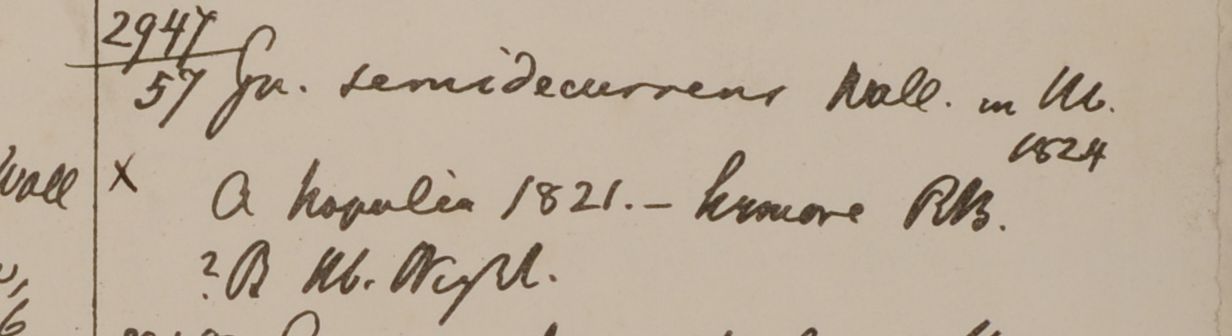 2947
57 Gn. semidecurrens Wall. in Hb.
1824
Wall x A Napalia 1821. – Kumaore RB.
? B Hb. Wight.
6